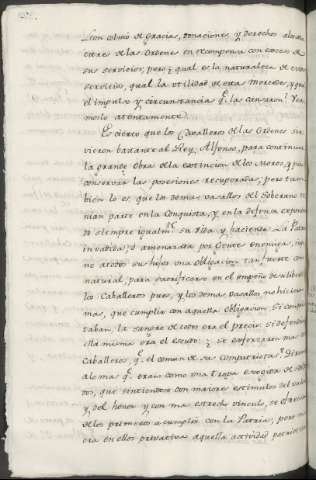 Leon estuvo de gracias, donaciones y derechos
de las Ordenes en recompensa con exceso de
sus servicios, pero qual es la naturaleza de estos
servicios, qual la utilidad de estas Mercedes, y qual
el impulso y circunstancias qe. las causaron? Vea
moslo atentamente.
Es cierto que los Cavalleros de las Ordenes sir
vieron bastante al Rey Alfonso, para continuar
la grande obra de la extincion de los Moros, y para
conservar las posesiones recuperadas, pero tam
bien lo es, que los demas vasallos del Soberano te
nian parte en la Conquista, y en la defensa expon
do siempre igualmte. su vida y hacienda. La Patria
invadida, ó amenazada por Gente enemiga, im
pone á todos sus hijos una obligacion tan fuerte como
natural, para sacrificarse en el empeño de
los Caballeros pues, y los demas Vasallos, no hicieron
mas, que cumplir con aquella obligacion. Si conquis
taban, la sangre de todos era el precio: si defendian
ella misma era el escudo: y se esforzaron mas
Caballeros, qe. el comun de sus Compatriotas?
alo mas qe. eran como una tropa escogida de
dos, que sintiendose con maiores estimulos del valor
y del honor y con mas estrecho vinculo, se ofrecian
de los primeros a cumplir con la Patria, pero
era en ellos privativa aquella actividad